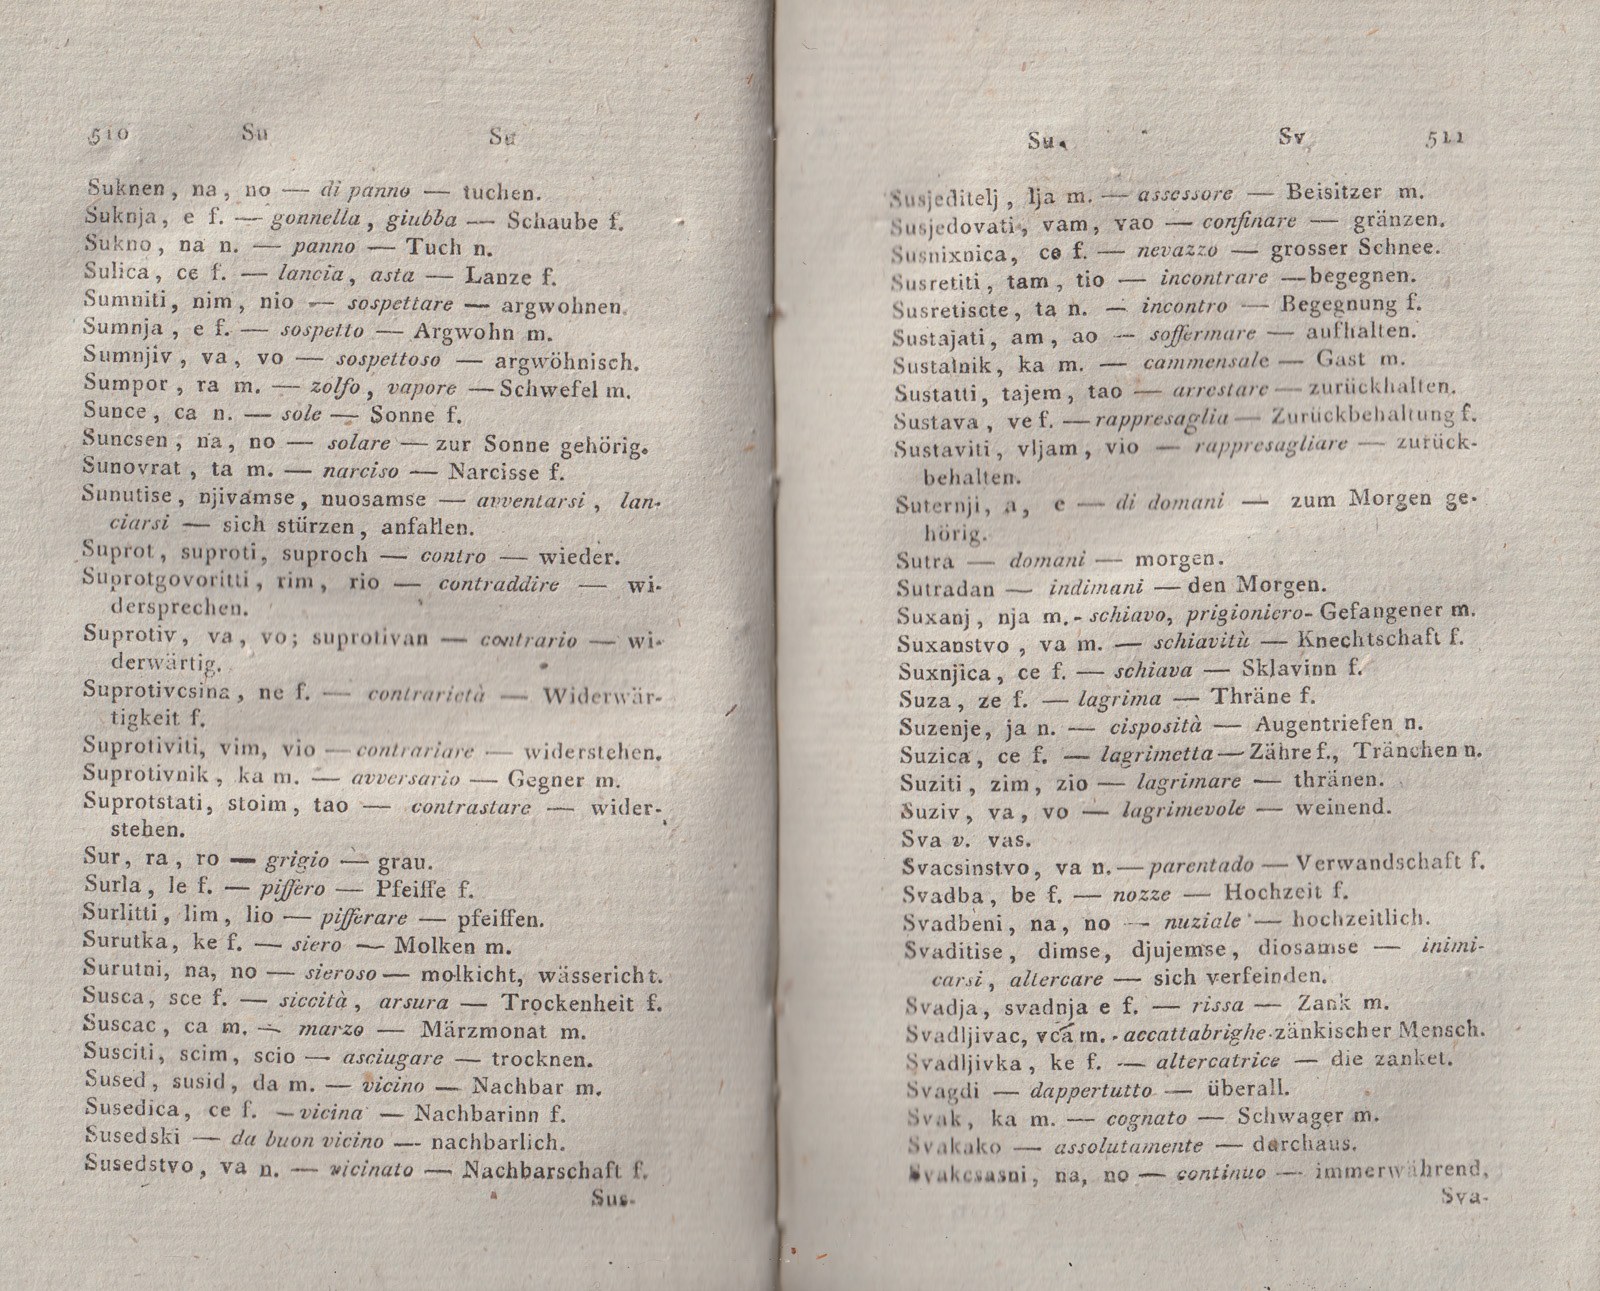 510 Su Su
Suknen, na, no — di panno — tuchen.
Suknja, e f. — gonnella, giubba — Schaube f.
Sukno, na n. — panno — Tuch n.
Sulica, ce f. — lancia, asta — Lanze f.
Sumniti, nim, nio — sospettare — argwohnen.
Sumnja, e f. — sospetto — Argwohn m.
Sumnjiv, va, vo — sospettoso — argwöhnisch.
Sumpor, ra m. — zolfo, vapore — Schwefel m.
Sunce, ca n. — sole — Sonne f.
Suncsen, na, no — solare — zur Sonne gehörig.
Sunovrat, ta m. — narciso — Narcisse f.
Sunutise, njivamse, nuosamse — avventarsi, lan-
ciarsi — sich stürzen, anfallen.
Suprot, suproti, suproch — contro — wieder.
Suprotgovoritti, rim, rio — contraddire — wi-
dersprechen.
Suprotiv, va, vo; suprotivan — contrario — wi-
derwärtig.
Suprotivcsina, ne f. — contrarietà — Widerwär-
tigkeit f.
Suprotiviti, vim, vio — contrariare — widerstehen.
Suprotivnik, ka m. — avversario — Gegner m.
Suprotstati, stoim, tao — contrastare — wider-
stehen.
Sur, ra, ro — grigio — grau.
Surla, le f. — piffero — Pfeiffe f.
Surlitti, lim, lio — pifferare — pfeiffen.
Surutka, ke f. — siero — Molken m.
Surutni, na, no — sieroso — molkicht, wässericht.
Susca, sce f. — siccità, arsura — Trockenheit f.
Suscac, ca m. — marzo — Märzmonat m.
Susciti, scim, scio — asciugare — trocknen.
Sused, susid, da m. — vicino — Nachbar m.
Susedica, ce f. — vicina — Nachbarinn f.
Susedski — da buon vicino — nachbarlich.
Susedstvo, va n. — vicinato — Nachbarschaft f.
Sus-
Su Sv 511
Susjeditelj, lja m. — assessore — Beisitzer m.
Susjedovati, vam, vao — confinare — gränzen.
Susnixnica, ce f. — nevazzo — grosser Schnee.
Susretiti, tam, tio — incontrare — begegnen.
Susretiscte, ta n. — incontro — Begegnung f.
Sustajati, am, ao — soffermare — aufhalten.
Sustalnik, ka m. — cammensale — Gast m.
Sustatti, tajem, tao — arrestare — zurückhalten.
Sustava, ve f. — rappresaglia — Zurückbehaltung f.
Sustaviti, vljam, vio — rappresagliare — zurück-
behalten.
Suternji, a, e — di domani — zum Morgen ge-
hörig.
Sutra — domani — morgen.
Sutradan — indimani — den Morgen.
Suxanj, nja m. - schiavo, prigioniero - Gefangener m.
Suxanstvo, va m. — schiavitù — Knechtschaft f.
Suxnjica, ce f. — schiava — Sklavinn f.
Suza, ze f. — lagrima — Thräne f.
Suzenje, ja n. — cisposità — Augentriefen n.
Suzica, ce f. — lagrimetta — Zähre f., Tränchen n.
Suziti, zim, zio — lagrimare — thränen.
Suziv, va, vo — lagrimevole — weinend.
Sva v. vas.
Svacsinstvo, va n. — parentado — Verwandschaft f.
Svadba, be f. — nozze — Hochzeit f.
Svadbeni, na, no — nuziale — hochzeitlich.
Svaditise, dimse, djujemse, diosamse — inimi-
carsi, altercare — sich verfeinden.
Svadja, svadnja e f. — rissa — Zank m.
Svadljivac, vca m. - accattabrighe - zänkischer Mensch.
Svadljivka, ke f. — altercatrice — die zanket.
Svagdi — dappertutto — überall.
Svak, ka m. — cognato — Schwager m.
Svakako — assolutamente — darchaus.
Svakcsasni, na, no — continuo — immerwährend,
Sva-